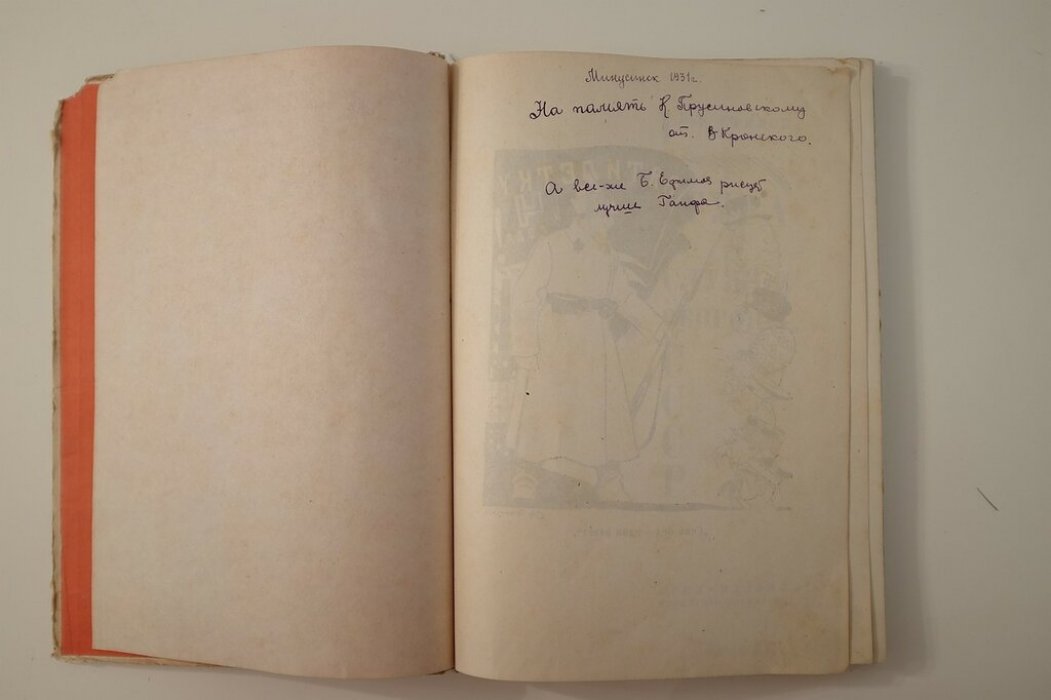 Минусинск 1931г.
На память К Прусиновскому
от. В Кронского.
А все-же Б. Ефимов рисует
лучше Ганфа.